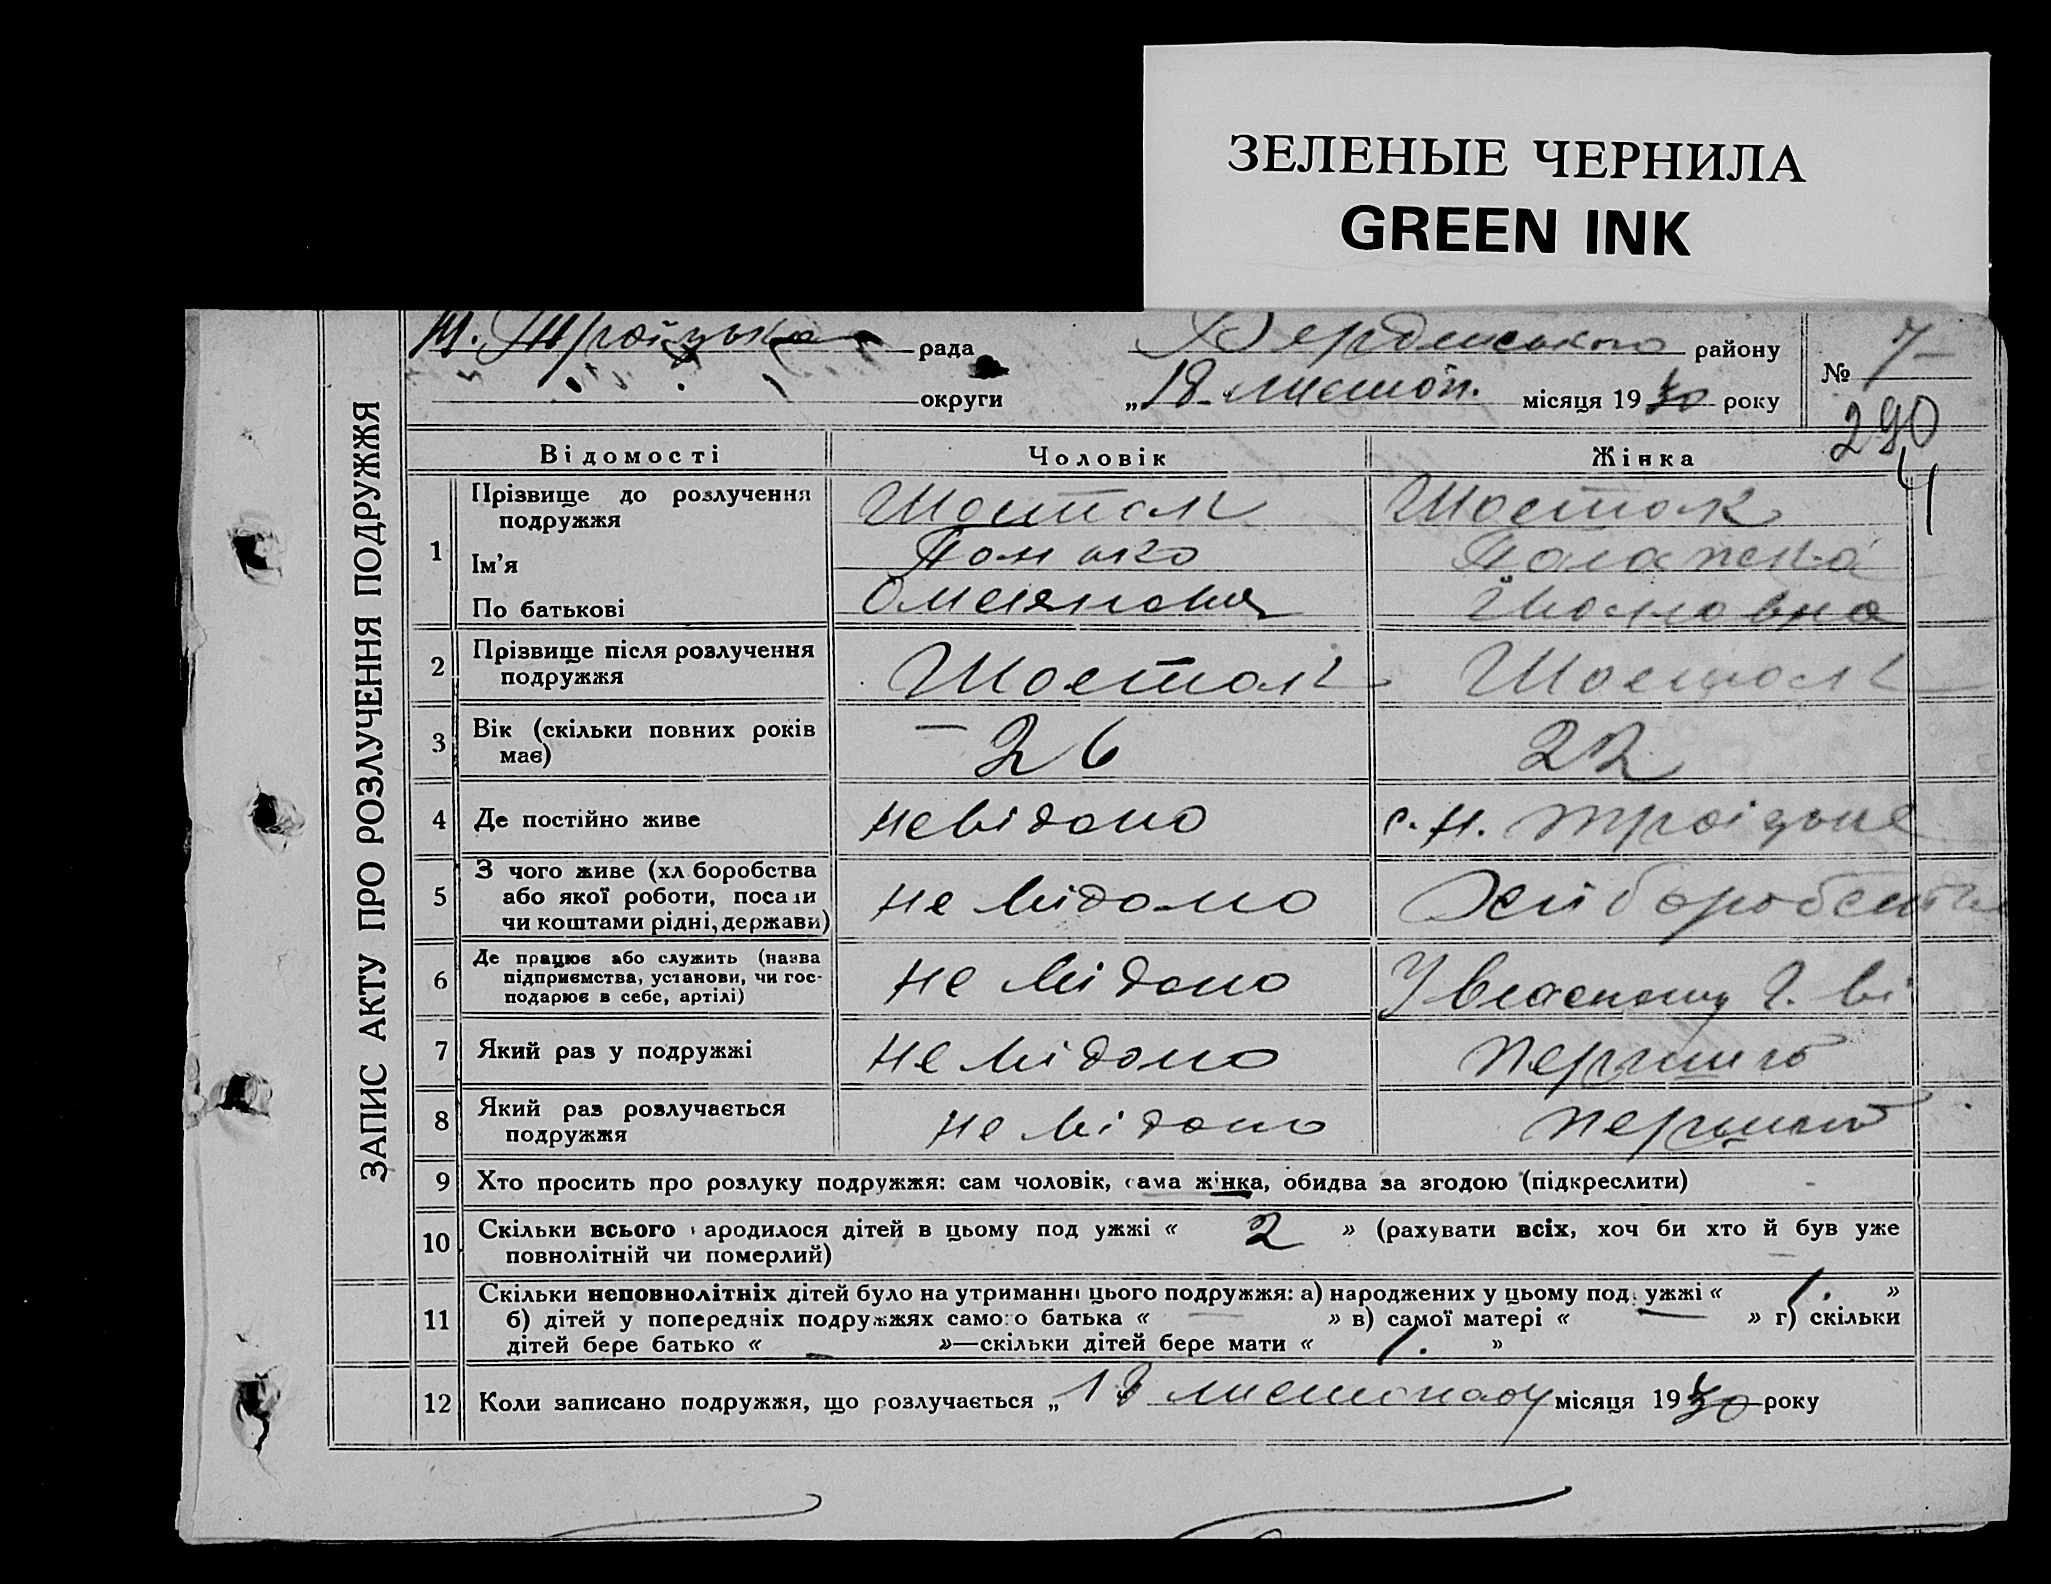 ЗЕЛЕНЫЕ ЧЕРНИЛА
GREEN INK
рада
району
№ 7
округи
„18 листоп. місяця 1930 року
290
ЗАПИС АКТУ ПРО РОЗЛУЧЕННЯ ПОДРУЖЖЯ
Відомості Чоловік Жінка
1 Прізвище до розлучення подружжя Шостак Шостак
Ім'я Палажка
По батькові
2 Прізвище після розлучення подружжя Шостак Шостак
3 Вік (скільки повних років має) 26 22
4 Де постійно живе невідомо с. Н. Троіцьке
5 З чого живе (хліборобства або якої роботи, посади чи коштами рідні, держави) не відомо
6 Де працює або служить (назва підприємства, установи, чи господарює в себе, артілі) не відомо У власному г. ві
7 Який раз у подружжі не відомо
8 Який раз розлучається подружжя не відомо
9 Хто просить про розлуку подружжя: сам чоловік, сама жінка, обидва за згодою (підкреслити)
10 Скільки всього народилося дітей в цьому подружжі « 2 » (рахувати всіх, хоч би хто й був уже
повнолітній чи померлий)
11 Скільки неповнолітніх дітей було на утриманні цього подружжя: а) народжених у цьому подружжі « 1. »
б) дітей у попередніх подружжях самого батька « — » в) самої матері « — » г) скільки
дітей бере батько « – »—скільки дітей бере мати « 1. »
12 Коли записано подружжя, що розлучається „18 листопаду місяця 1930 року